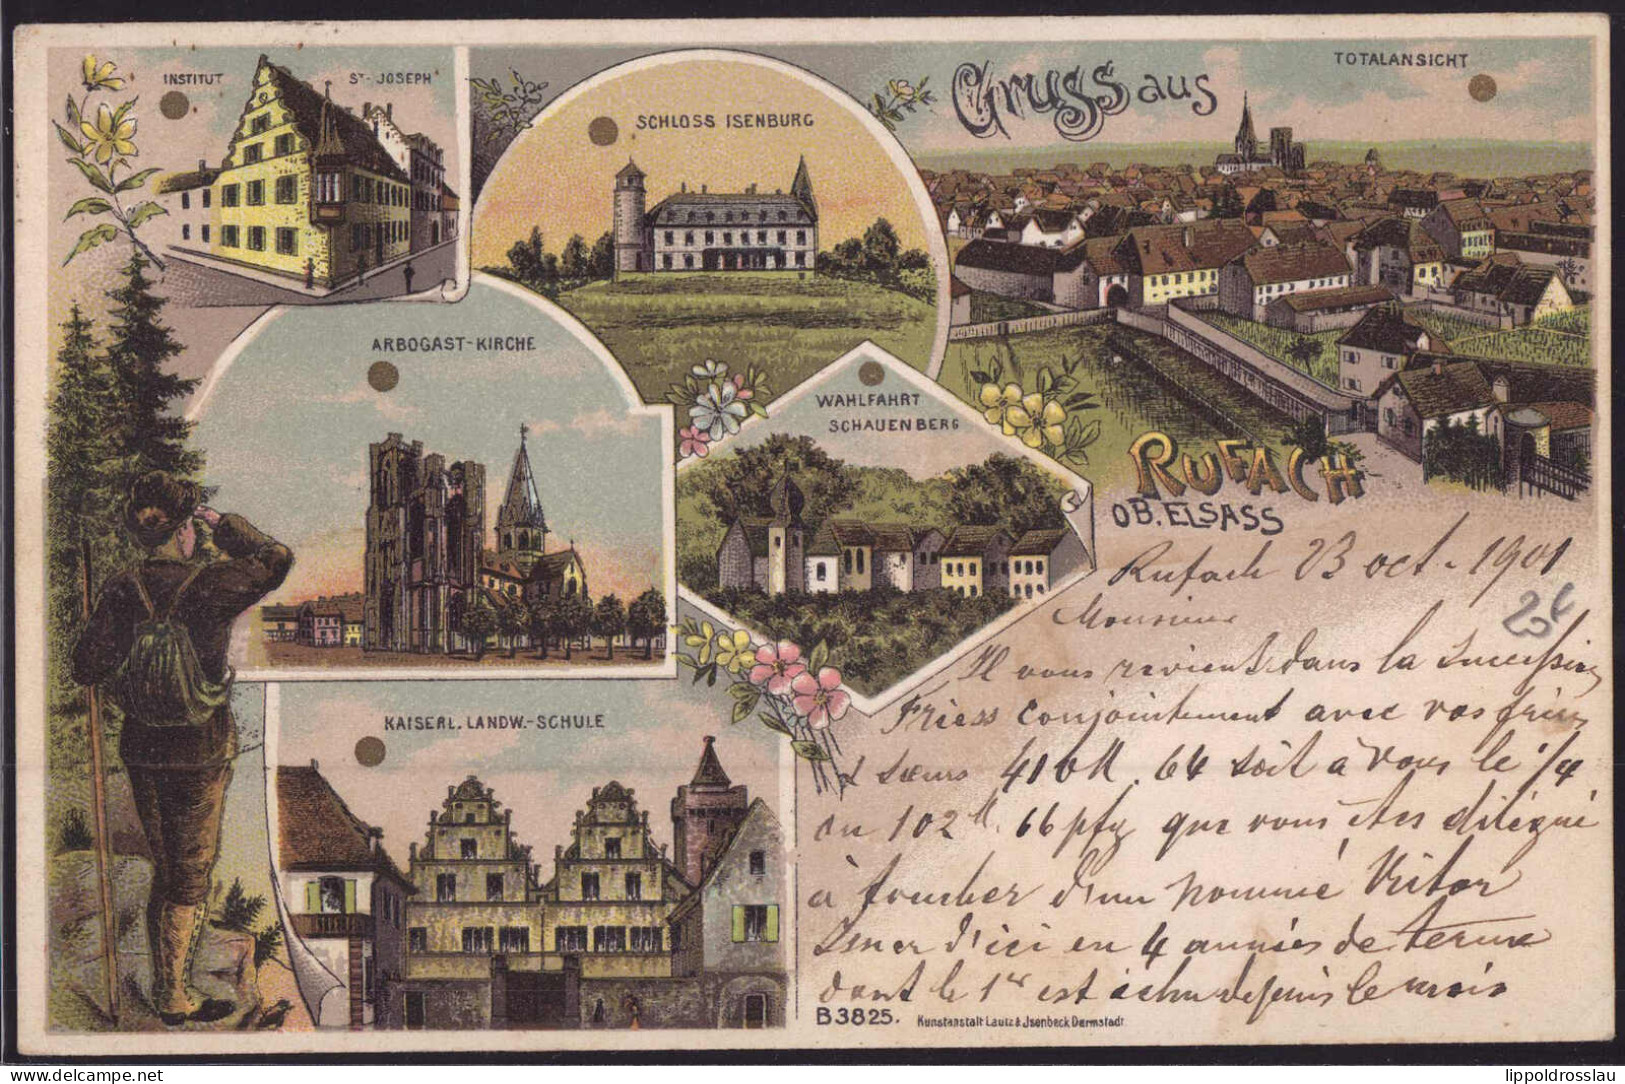 INSTITUT ST- JOSEPH
SCHLOSS ISENBURG
Gruss aus
TOTALANSICHT
ARBOGAST-KIRCHE
WAHLFAHRT
SCHAUENBERG
RUFACH
OB. ELSASS
KAISERL. LANDW.-SCHULE
Rufach 23 oct. 1901
Monsieur
Il vous revient dans la succession
Friess conjointement avec vos frères
& sœurs 410 M. 64 soit à vous le 1/4
ou 102 M. 66 pfg que vous êtes délégué
à toucher d'un nommé Victor
d'ici en 4 années de terme
dont le 1er est échu depuis le mois
B 3825. Kunstanstalt Lautz & Jsenbeck Darmstadt
delcampe.net
lippoldrosslau